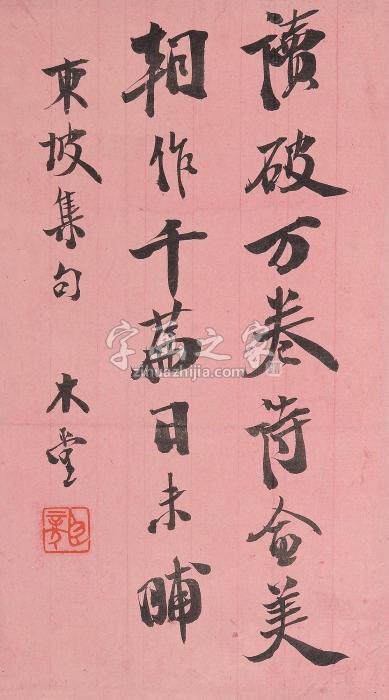 讀破万卷詩愈美
朝作千篇日未晡
東坡集句 木堂
字画之家
zihuazhijia.com